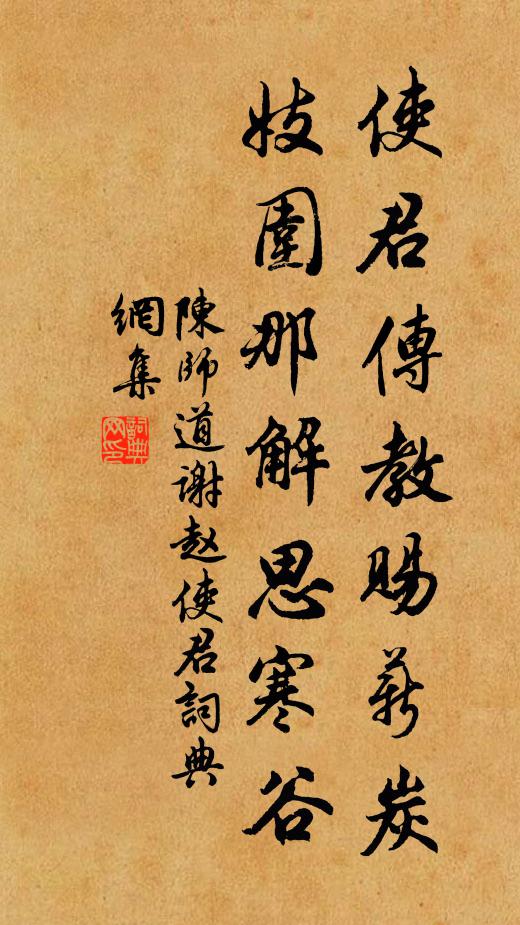 使君傳教賜薪炭
妓圍那解思寒谷
陳師道謝赵使君詞典
網集
詞典
网印